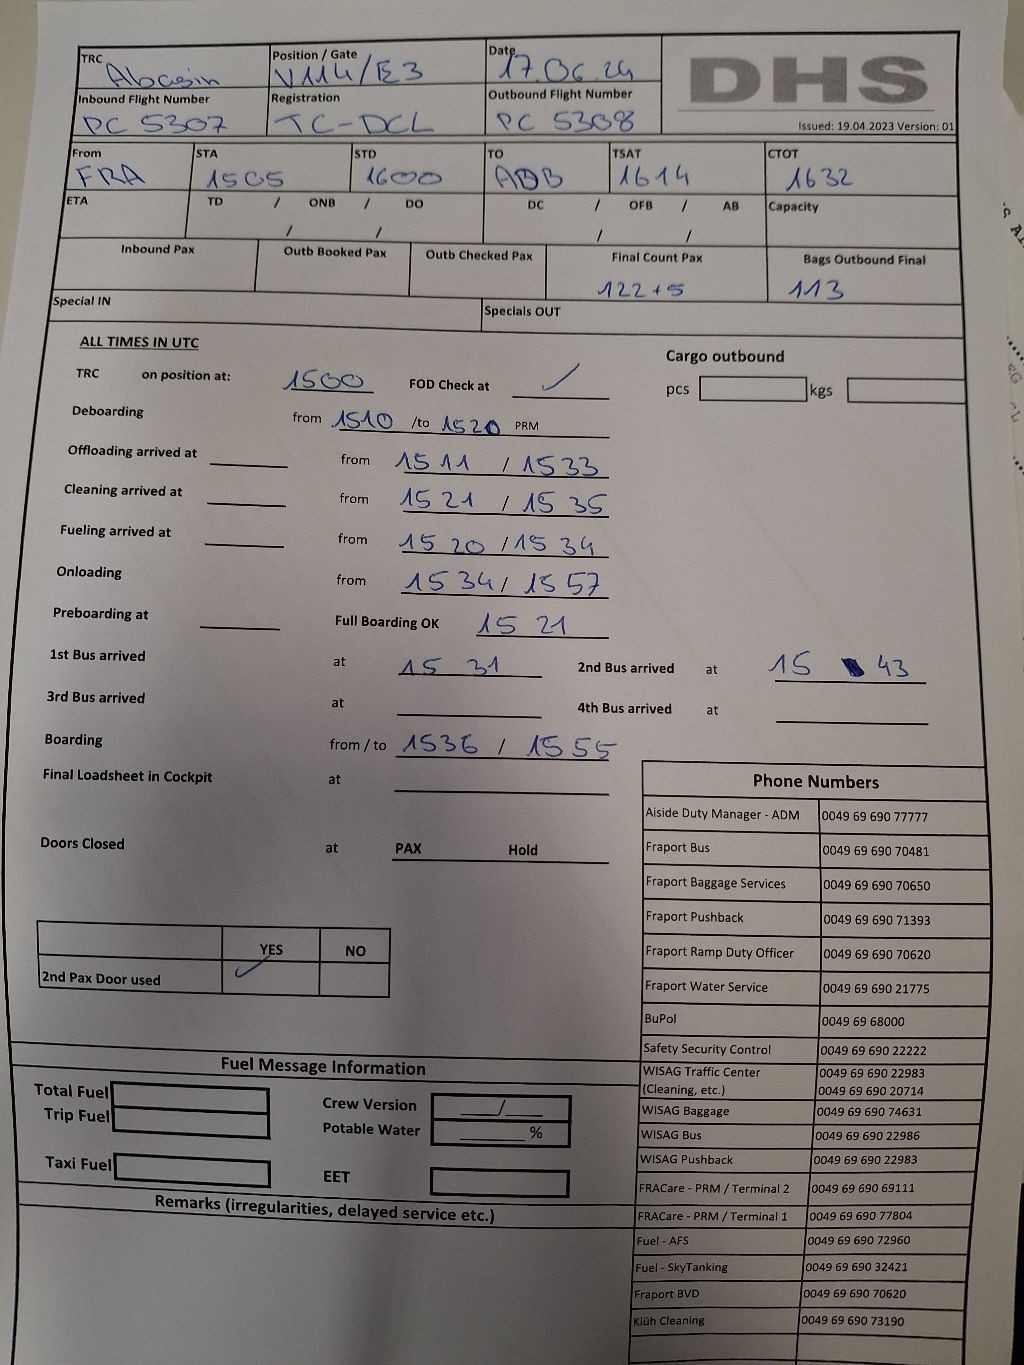 TRC Abasin Position / Gate V114/E3 Date 17.06.24 DHS
Inbound Flight Number PC 5307 Registration TC-DCL Outbound Flight Number PC 5308 Issued: 19.04.2023 Version: 01
From FRA STA 1505 STD 1600 TO ADB TSAT 1614 CTOT 1632
ETA TD / ONB / DO DC / OFB / AB Capacity
/ / / /
Inbound Pax Outb Booked Pax Outb Checked Pax Final Count Pax 122+5 Bags Outbound Final 113
Special IN Specials OUT
ALL TIMES IN UTC Cargo outbound
TRC on position at: 1500 FOD Check at ✓ pcs kgs
Deboarding from 1510 /to 1520 PRM
Offloading arrived at from 1511 / 1533
Cleaning arrived at from 1521 / 1535
Fueling arrived at from 1520 / 1534
Onloading from 1534 / 1557
Preboarding at Full Boarding OK 1521
1st Bus arrived at 1531 2nd Bus arrived at 15 43
3rd Bus arrived at 4th Bus arrived at
Boarding from / to 1536 / 1555
Final Loadsheet in Cockpit at
Doors Closed at PAX Hold
YES NO
2nd Pax Door used ✓
Phone Numbers
Aiside Duty Manager - ADM 0049 69 690 77777
Fraport Bus 0049 69 690 70481
Fraport Baggage Services 0049 69 690 70650
Fraport Pushback 0049 69 690 71393
Fraport Ramp Duty Officer 0049 69 690 70620
Fraport Water Service 0049 69 690 21775
BuPol 0049 69 68000
Safety Security Control 0049 69 690 22222
WISAG Traffic Center 0049 69 690 22983
(Cleaning, etc.) 0049 69 690 20714
WISAG Baggage 0049 69 690 74631
WISAG Bus 0049 69 690 22986
WISAG Pushback 0049 69 690 22983
FRACare - PRM / Terminal 2 0049 69 690 69111
FRACare - PRM / Terminal 1 0049 69 690 77804
Fuel - AFS 0049 69 690 72960
Fuel - SkyTanking 0049 69 690 32421
Fraport BVD 0049 69 690 70620
Klüh Cleaning 0049 69 690 73190
Fuel Message Information
Total Fuel Crew Version /
Trip Fuel Potable Water %
Taxi Fuel EET
Remarks (irregularities, delayed service etc.)